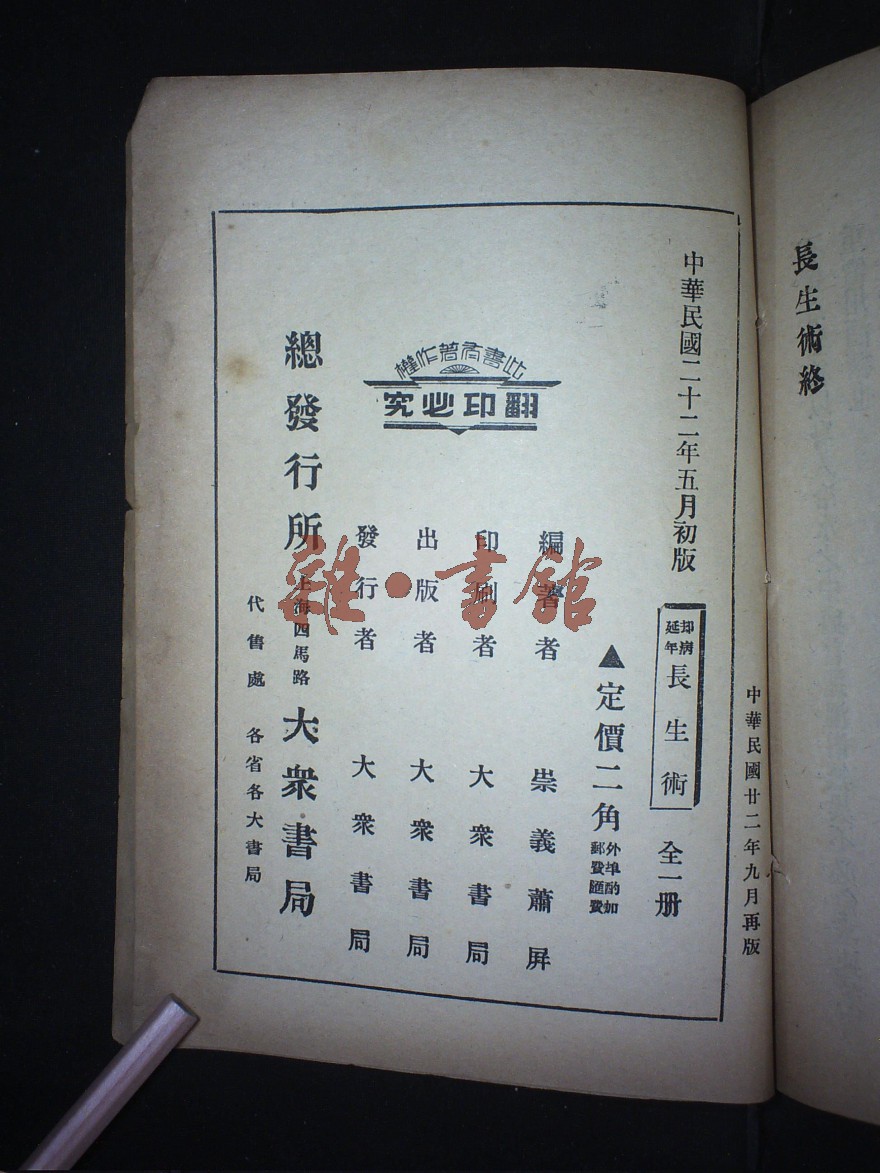 長生術終
中華民國廿二年九月再版
中華民國二十二年五月初版
却病延年
長生術
全一册
▲定價二角
外埠酌加
郵費匯費
編著者 崇義蕭屏
印刷者 大衆書局
出版者 大衆書局
發行者 大衆書局
此書有著作權
翻印必究
總發行所 上海四馬路 大衆書局
代售處 各省各大書局
雜·書館